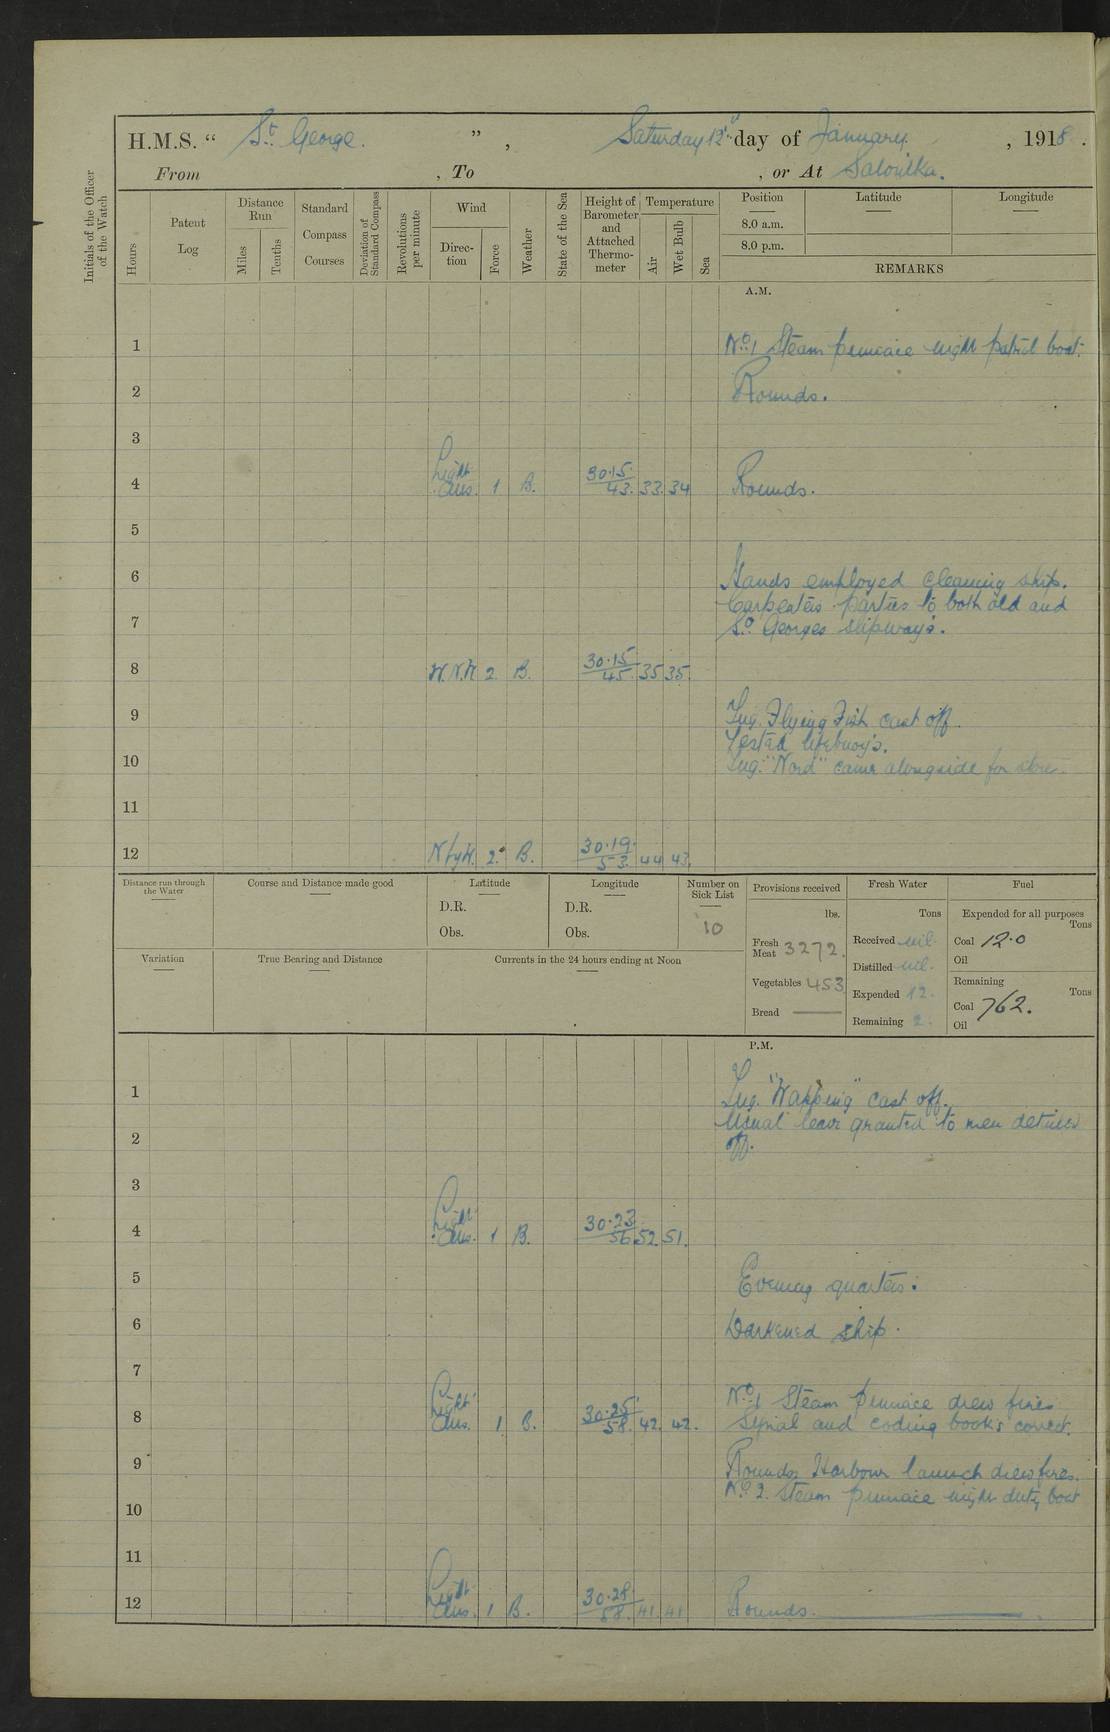 H.M.S. “ St. George. ” , Saturday 12th day of January , 1918 .
From , To , or At Salonika.
Initials of the Officer of the Watch
Hours
Patent Log
Distance Run
Miles
Tenths
Standard Compass Courses
Deviation of Standard Compass
Revolutions per minute
Wind
Direction
Force
Weather
State of the Sea
Height of Barometer and Attached Thermometer
Temperature
Air
Wet Bulb
Sea
Position
Latitude
Longitude
8.0 a.m.
8.0 p.m.
REMARKS
A.M.
1 No. 1 Steam pinnace night patrol boat.
2 Rounds.
3
4 Light Airs. 1 B. 30.15. 43. 33. 34 Rounds.
5
6 Hands employed cleaning ship.
Carpenters parties to both old and
7 St. Georges slipway's.
8 W.N.W 2. B. 30.15 45. 35 35.
9 Tug. Flying Fish cast off.
Tested lifebuoy's.
10 Tug. "Nord" came alongside for store.
11
12 N by W. 2. B. 30.19. 53. 44 43.
Distance run through the Water
Course and Distance made good
Latitude
D.R.
Obs.
Longitude
D.R.
Obs.
Number on Sick List
10
Provisions received
lbs.
Fresh Meat 3272.
Vegetables 453
Bread ——
Fresh Water
Tons
Received nil.
Distilled nil.
Expended 12.
Remaining 2.
Fuel
Expended for all purposes
Tons
Coal 12.0
Oil
Remaining
Tons
Coal 762.
Oil
Variation
True Bearing and Distance
Currents in the 24 hours ending at Noon
P.M.
1 Tug. "Wapping" cast off.
Usual leave granted to men detailed
2 off.
3
4 Light Airs. 1 B. 30.23 56 52. 51.
5 Evening quarters.
6 Darkened ship.
7
No. 1 Steam pinnace drew fires
8 Light Airs. 1 B. 30.25 58. 42. 42. Signal and coding books correct.
9 Rounds Harbour launch drew fires.
No. 2. Steam pinnace night duty boat
10
11
12 Light Airs. 1 B. 30.28 58. 41. 41 Rounds.